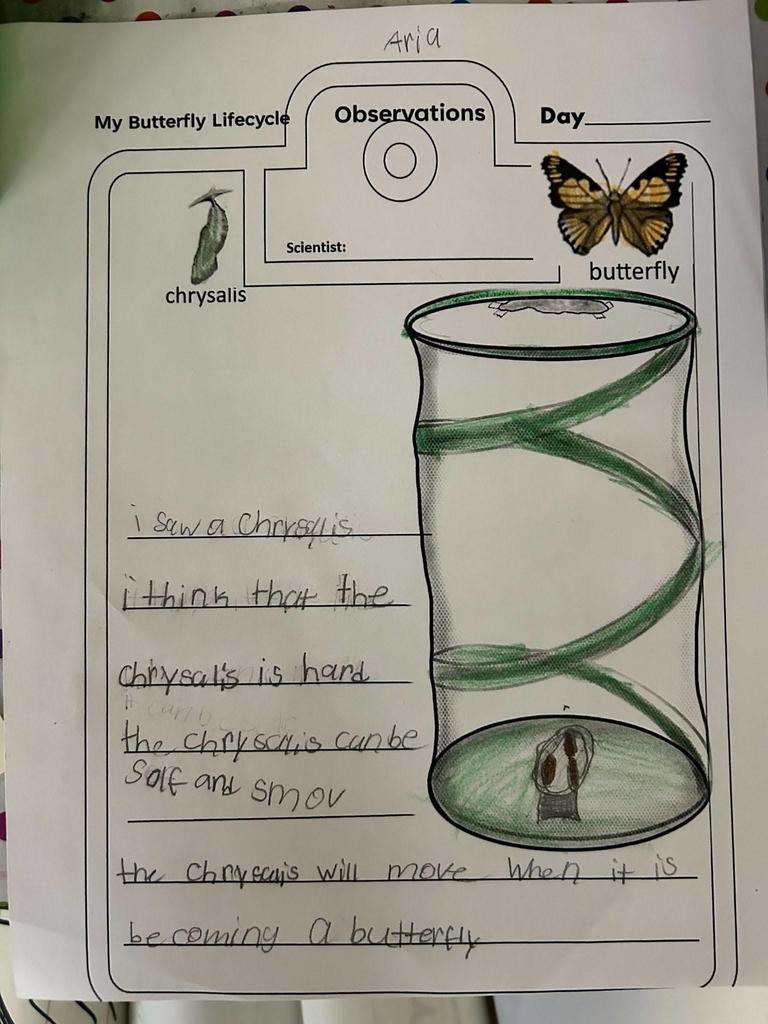 Aria
My Butterfly Lifecycle Observations Day
Scientist:
butterfly
chrysalis
i saw a Chrysalis
i think that the
chrysalis is hard
the chrysalis can be
Solf and smov
the chrysais will move when it is
becoming a butterfly